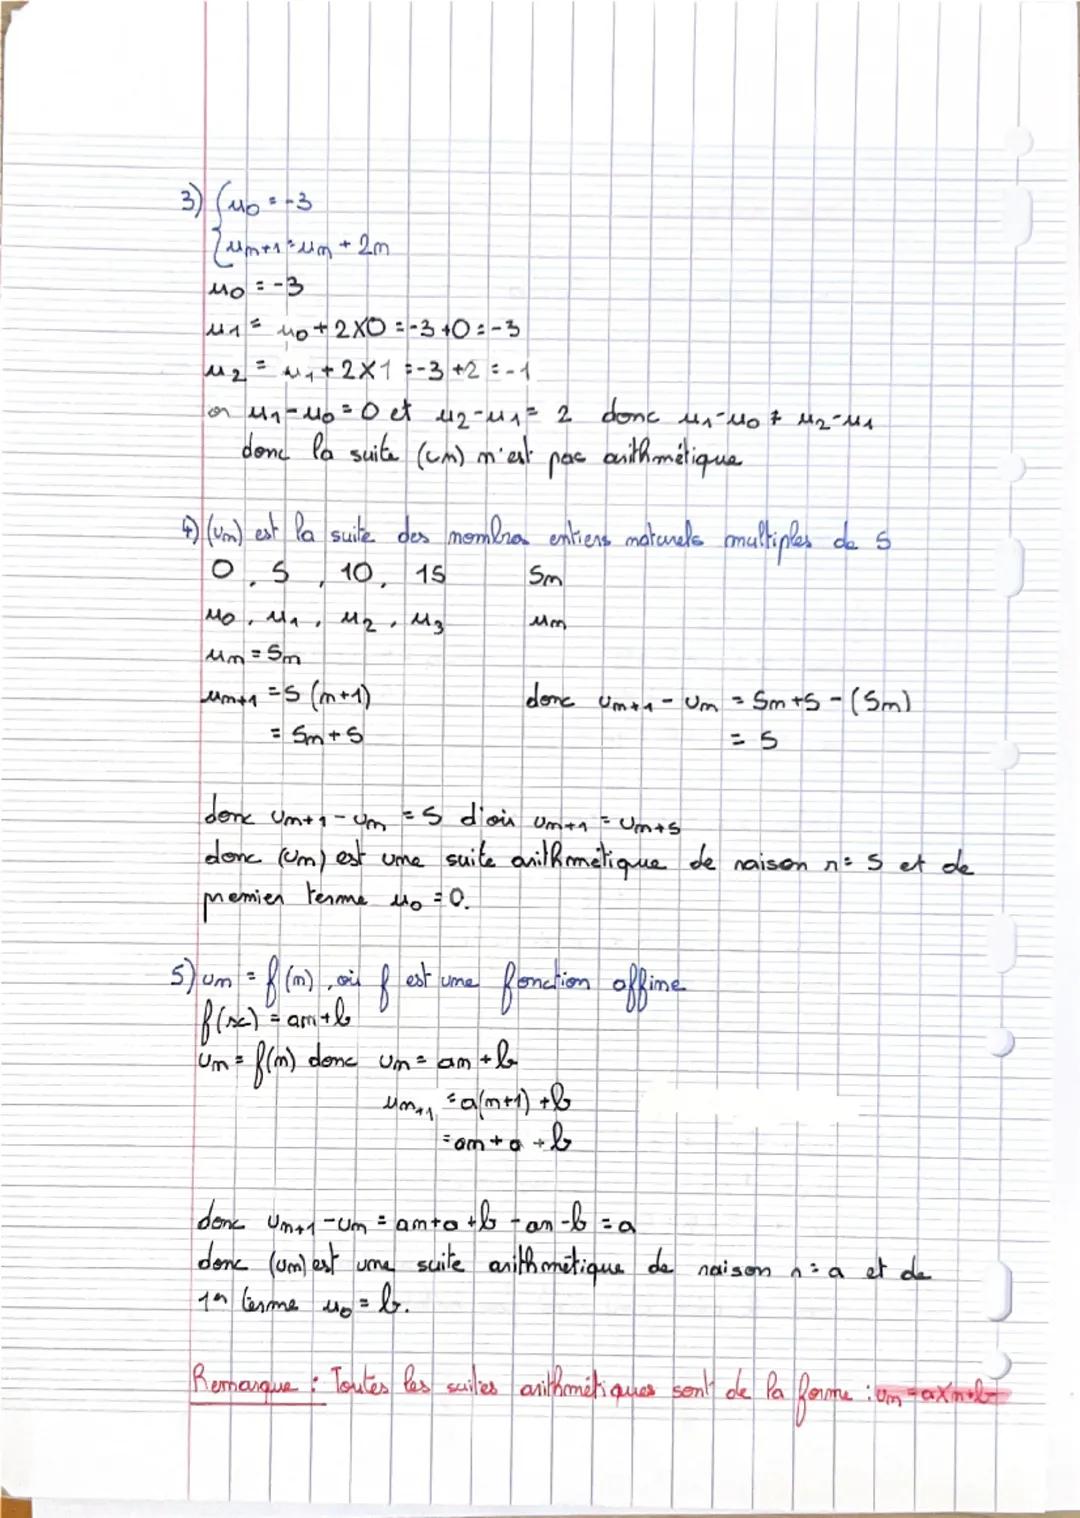 3) { u0 = -3
{ un+1 = un + 2n
u0 = -3
u1 = u0 + 2×0 = -3+0 = -3
u2 = u1 + 2×1 = -3+2 = -1
or u1-u0 = 0 et u2-u1 = 2 donc u1-u0 ≠ u2-u1
donc la suite (un) n'est pas arithmétique
4) (un) est la suite des nombres entiers naturels multiples de 5
0, 5, 10, 15 5n
u0, u1, u2, u3 un
un = 5n
un+1 = 5(n+1) donc un+1 - un = 5n+5-(5n)
= 5n+5 = 5
donc un+1-un = 5 d'où un+1 = un+5
donc (un) est une suite arithmétique de raison r = 5 et de
premier terme u0 = 0.
5) un = f(n), où f est une fonction affine
f(x) = an+b
un = f(n) donc un = an+b
un+1 = a(n+1)+b
= an+a+b
donc un+1-un = an+a+b-an-b = a
donc (un) est une suite arithmétique de raison r = a et de
1er terme u0 = b.
Remarque : Toutes les suites arithmétiques sont de la forme : un = a×n+b